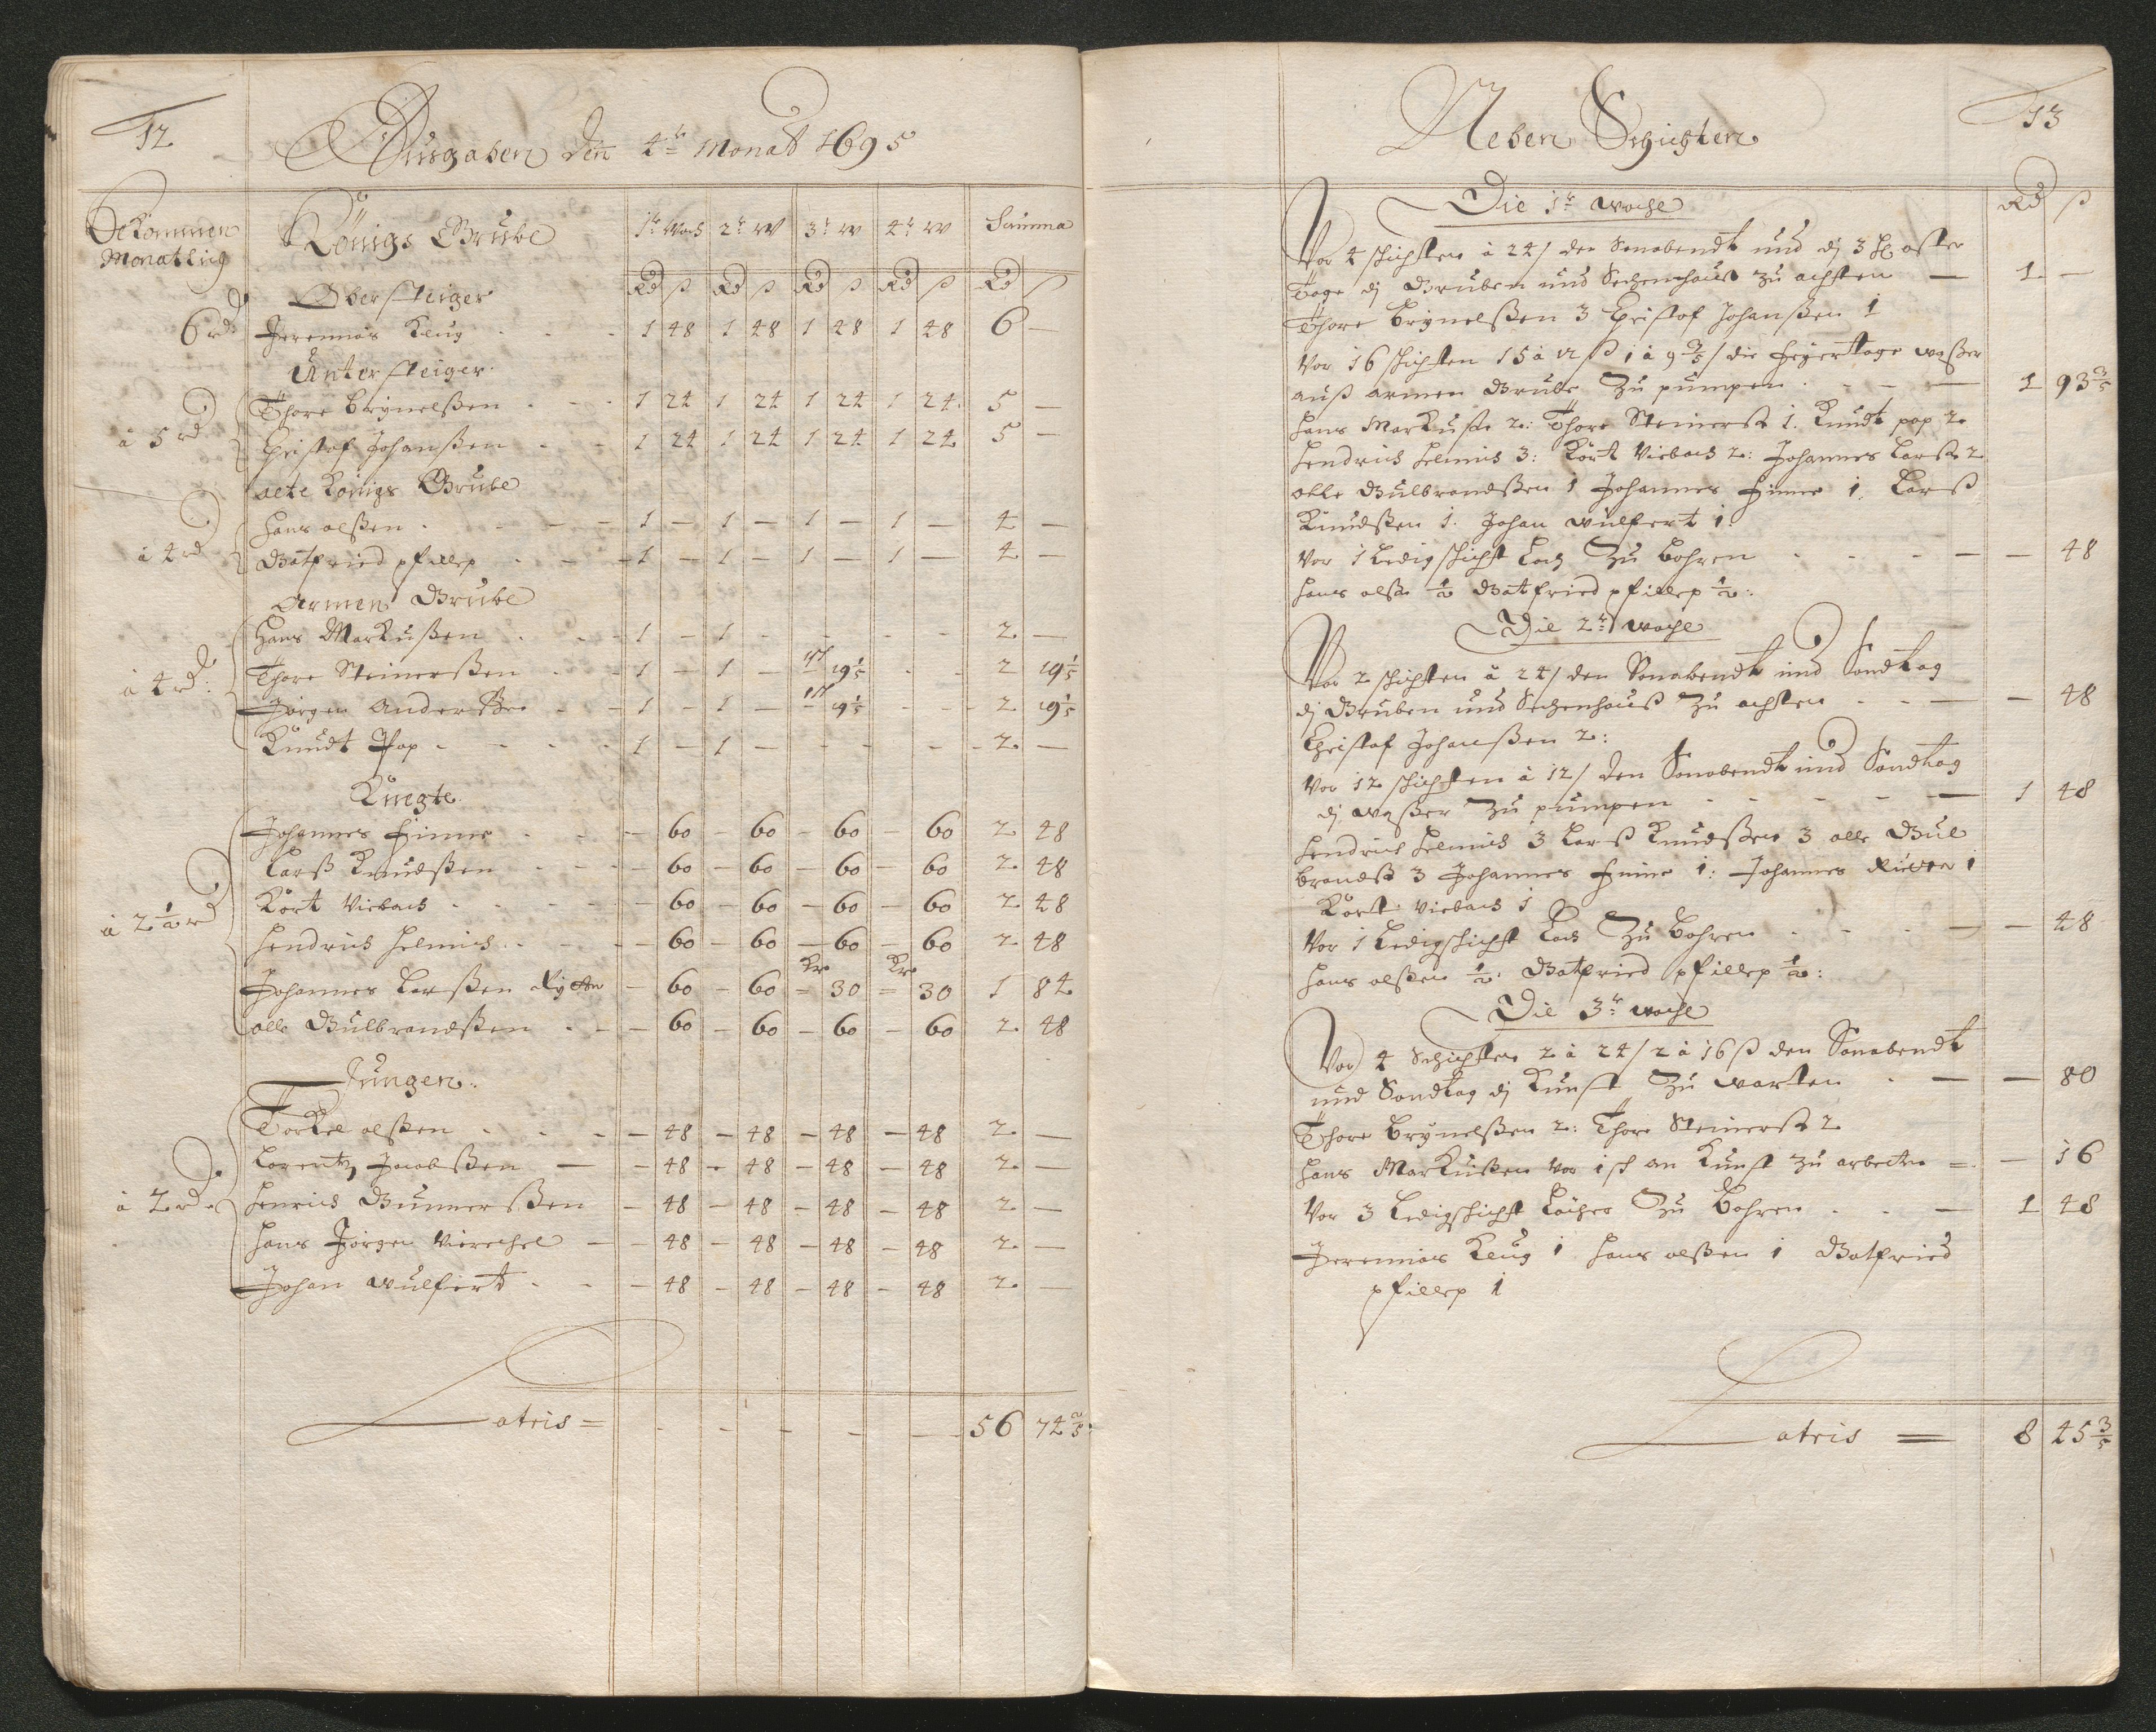 12
Ausgaben den 4te Monat 1695
Bekommen Monatlich
Königs Grube 1te Woch 2te W 3te W 4te W Summa
Rd ß Rd ß Rd ß Rd ß Rd ß
Obersteiger
6 rd Jeremias Klug - - 1 48 1 48 1 48 1 48 6 —
Untersteiger
Thore Brynelßen - - 1 24 1 24 1 24 1 24 5 —
à 5 rd
Christof Johanßen - - 1 24 1 24 1 24 1 24 5 —
alte Königs Grube
Hans olßen - - 1 — 1 — 1 — 1 — 4 —
à 4 rd
Gotfried pfillip - - 1 — 1 — 1 — 1 — 4 —
Armen Grube
Hans Markußen - - 1 — 1 - - - - - 2 —
Thore Steinerßen - - 1 — 1 — — 19 1/5 - - 2 19 1/5
à 4 rd:
Jörgen Anderßen - - 1 — 1 — — 19 1/5 - - 2 19 1/5
Knudt Pop - - 1 — 1 — - - - - 2 —
Knegte
Johannes Finne - - — 60 — 60 — 60 — 60 2 48
Larß Knudßen - - — 60 — 60 — 60 — 60 2 48
à 2 1/2 rd
Kört Viebach - - — 60 — 60 — 60 — 60 2 48
Hendrich Helmich - - — 60 — 60 — 60 — 60 2 48
Kr Kr
Johannes Larßen — 60 — 60 = 30 = 30 1 84
olle Gulbrandßen - - — 60 — 60 — 60 — 60 2 48
Jungen:
Torkel olßen - - — 48 — 48 — 48 — 48 2 —
Lorentz Jacobßen — — 48 — 48 — 48 — 48 2 —
à 2 rd
Henrich Gunnerßen — 48 — 48 — 48 — 48 2 —
Hans Jörgen — — 48 — 48 — 48 — 48 2 —
Johan Wulfert - - — 48 — 48 — 48 — 48 2 —
Latris = - - - - — 56 74 2/5
13
Neben Schichten
Die 1te Woche Rd ß
Vor 4 schichten à 24 / den Sonabendt und di 3 oster
Tage di Gruben und Zechenhauß zu achten — 1 —
Thore Brynelßen 3 Christof Johanßen 1
Vor 16 schichten 15 à 12 ß 1 à 9 3/5 / die Feyertage waßer
auß armen Grube Zu pumpen - - — 1 93 3/5
Hans Markuße 2: Thore Steinerß 1. Knudt pop 2
Hendrich Helmich 3: Kört Viebach 2: Johannes Larß 2
olle Gulbrandßen 1 Johannes Finne 1. Larß
Knudßen 1. Johan Wulfert 1.
Vor 1 Ledigschicht Loch Zu Bohren - - — — 48
Hans olße 1/2 Gotfried pfillip 1/2:
Die 2te Woche
Vor 2 schichten à 24 / den Sonabendt und Sondtag
di Gruben und Zechenhauß Zu achten - - — — 48
Christof Johanßen 2:
Vor 12 schichten à 12 / den Sonabendt und Sondtag
di waßer Zu pumpen - - - — 1 48
Hendrich Helmich 3 Larß Knudßen 3 olle Gul
brandß 3 Johannes Finne 1: Johannes 1
Kört Viebach 1
Vor 1 Ledigschicht Loch Zu Bohren - - — — 48
Hans olßen 1/2: Gotfried pfillip 1/2:
Die 3te Woche
Vor 4 Schichten 2 à 24 / 2 à 16 ß den Sonabendt
und Sondtag di Kunst Zu warten - — — 80
Thore Brynelßen 2: Thore Steinerß 2
Hans Markußen vor 1 sch an Kunst zu arbeiten = — 16
Vor 3 Ledigschicht Löcher Zu Bohren - - — 1 48
Jeremias Klug 1 Hans olßen 1 Gotfried
pfillip 1
Latris = 8 45 3/5